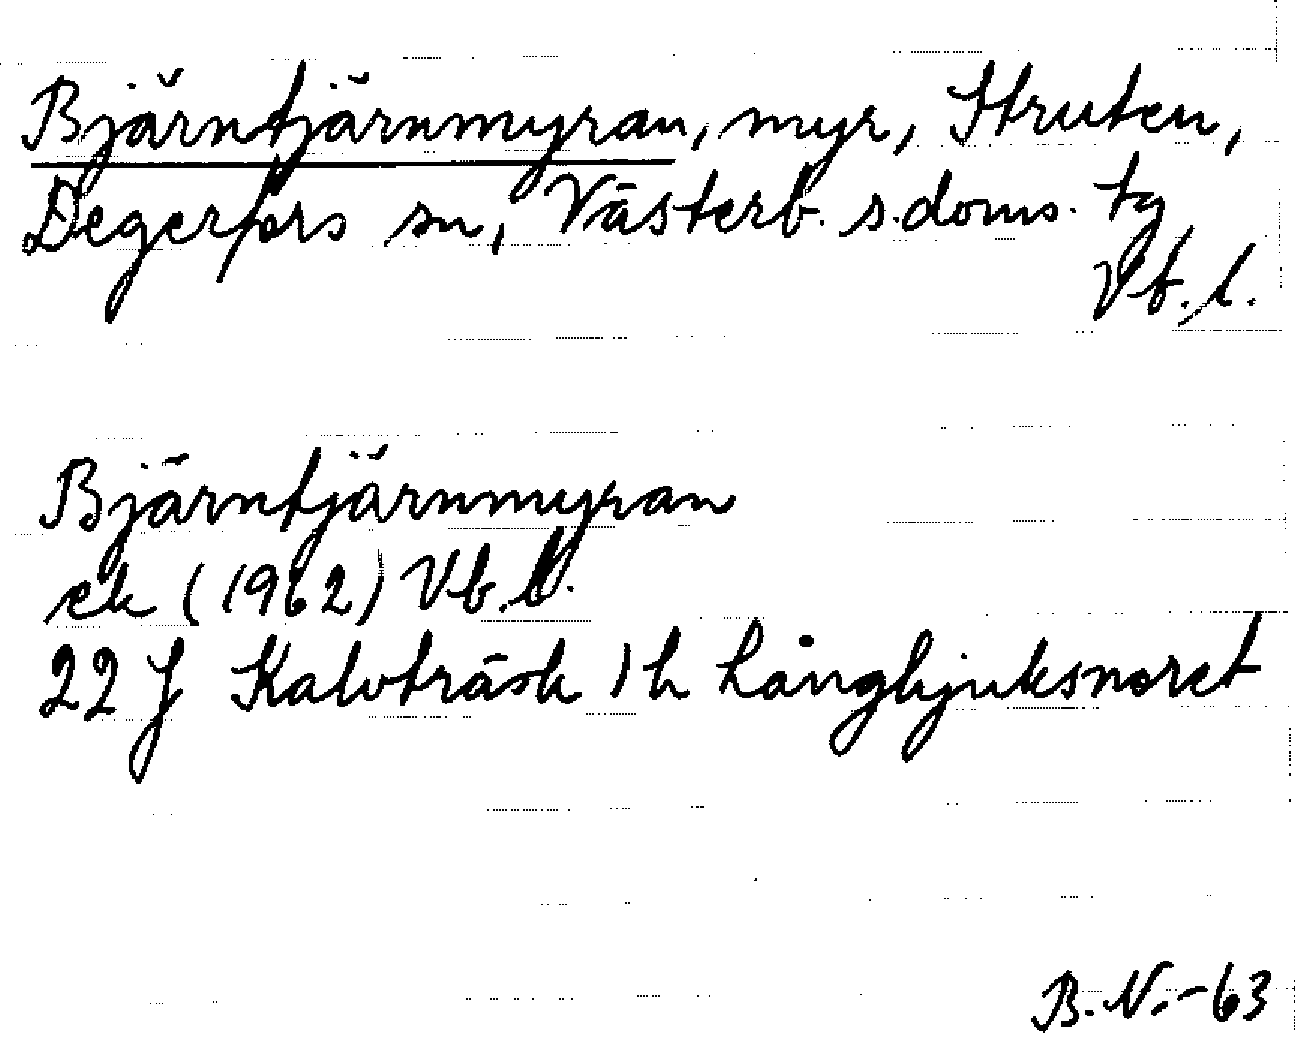 Bjärntjärnmyran, myr, Struten,
Degerfors sn, Västerb. s. doms. tg
Vb. l.
Bjärntjärnmyran
ek (1962) Vb. l.
22 J Kalvträsk 1 h Långhjuksnoret
B. N. -63